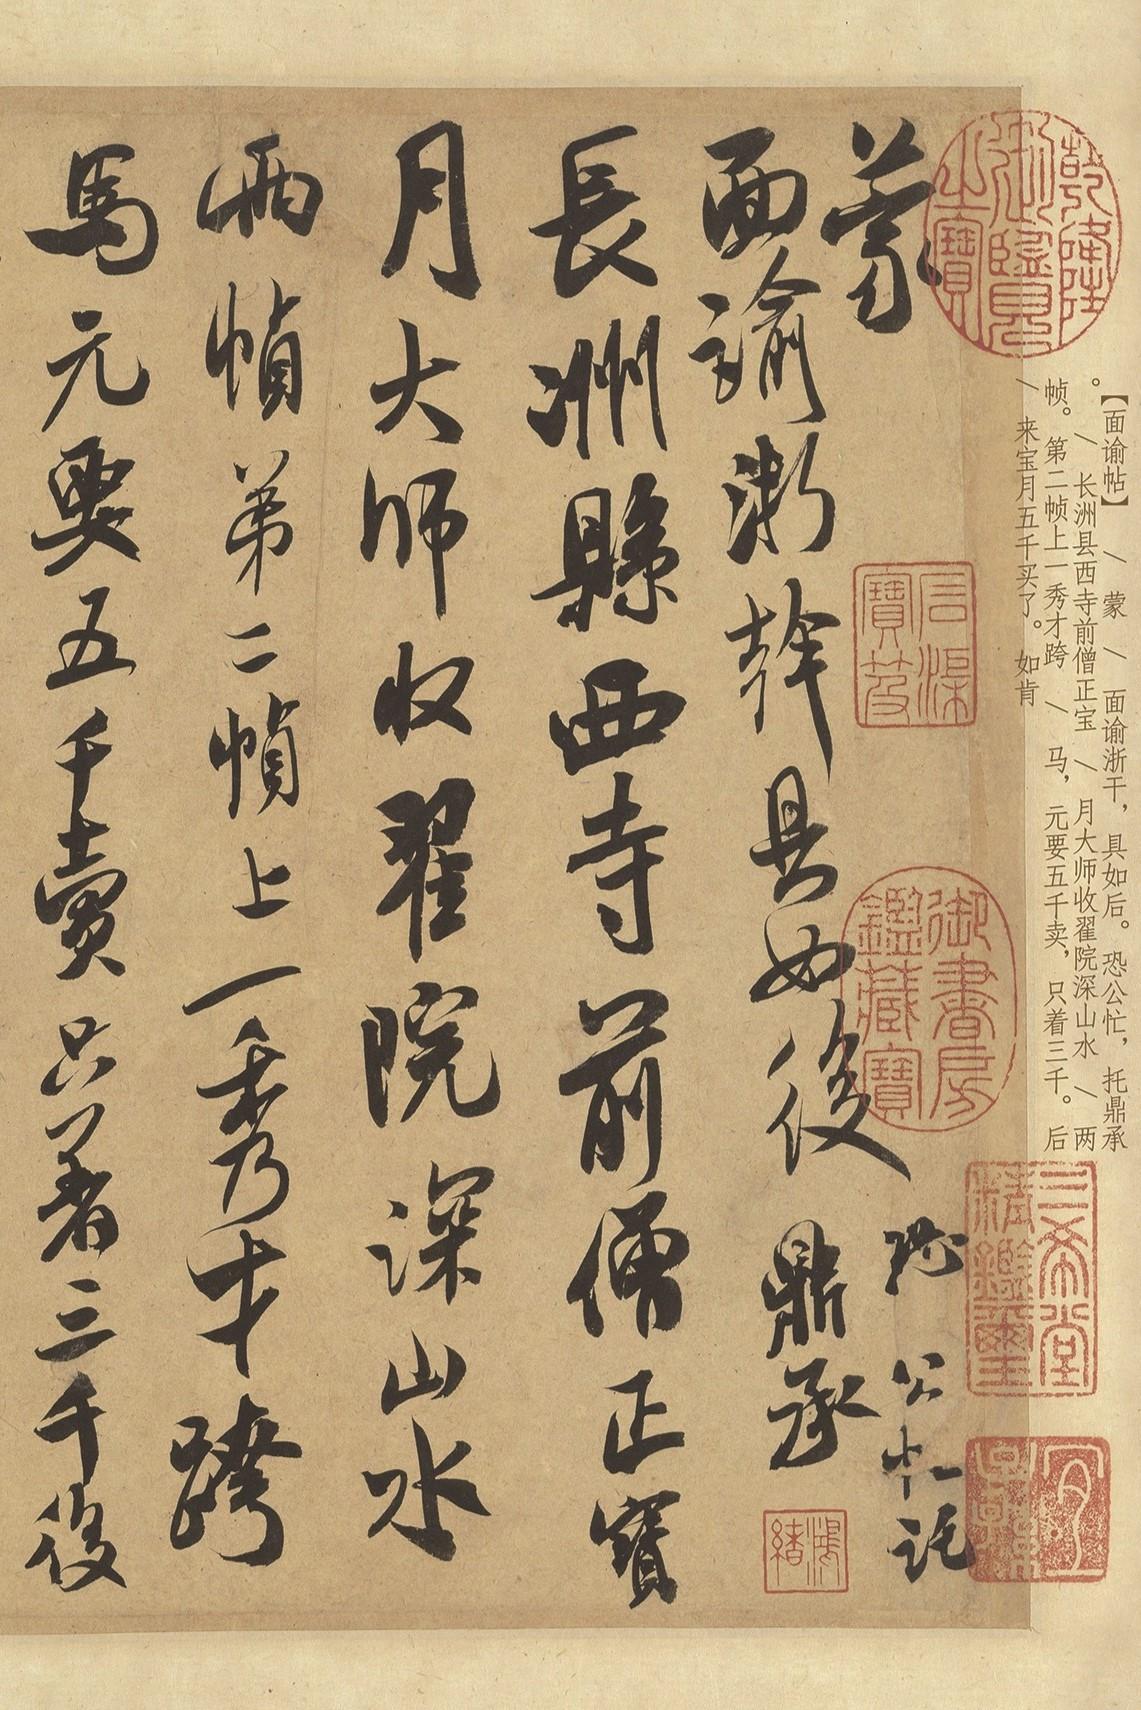 【面谕帖】 \ 蒙 \ 面谕浙干，具如后。恐公忙，托鼎承
。\ 长洲县西寺前僧正宝 \ 月大师收翟院深山水 \ 两
帧。第二帧上一秀才跨 \ 马，元要五千卖，只着三千。后
\ 来宝月五千买了。如肯
乾隆
御鑑
之寶
石渠
寶笈
御書房
鑑藏寶
三希堂
精鑑璽
蒙
面諭浙幹具如後
恐公忙託
鼎承
長洲縣西寺前僧正寶
月大师收翟院深山水
兩幀弟二幀上一秀才跨
馬元要五千賣只著三千後